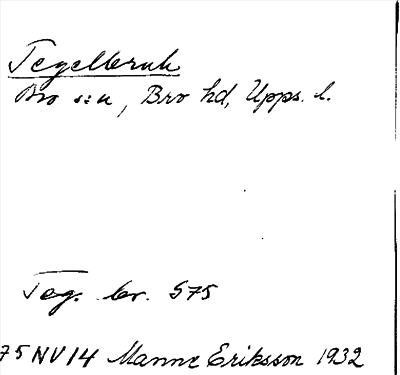 Tegelbruk
Bro sn, Bro hd, Upps. l.
Teg. br. S75
75 NV 14 Manne Eriksson 1932